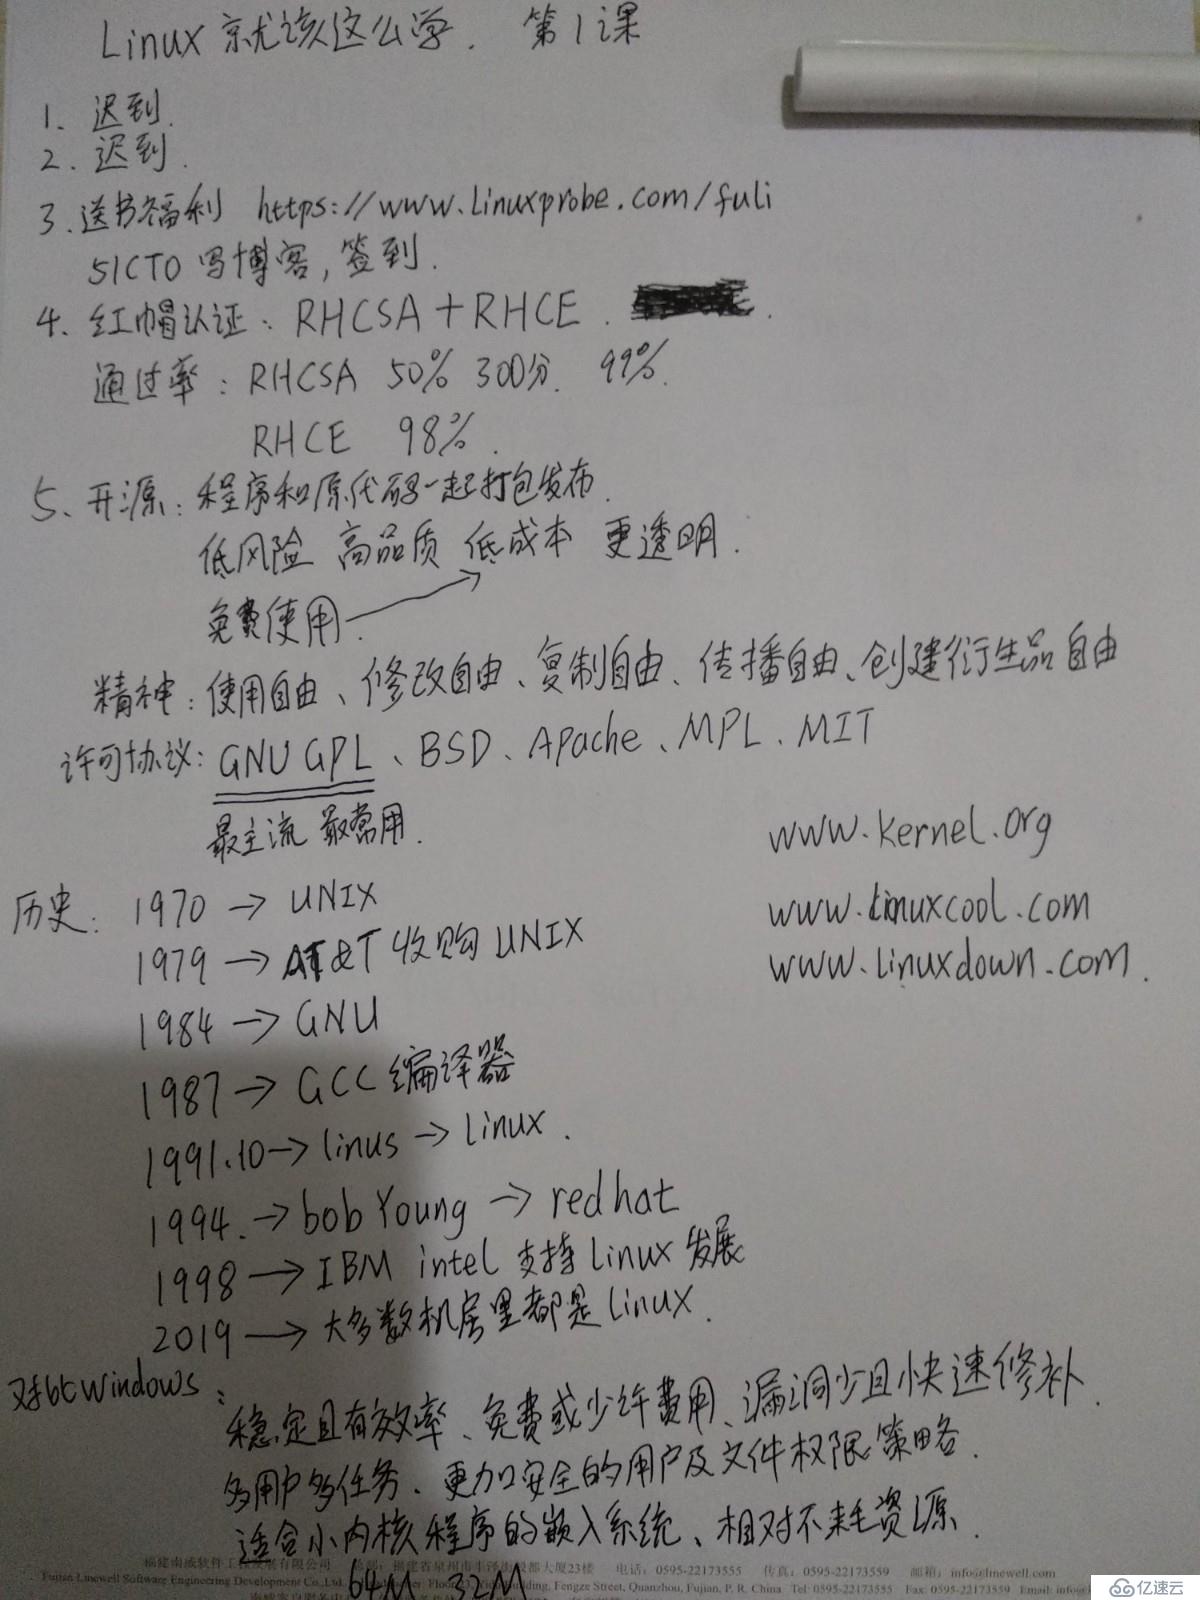 Linux 就该这么学. 第1课
1、迟到.
2、迟到.
3、送书福利 https://www.linuxprobe.com/fuli
51CTO 写博客, 签到.
4、红帽认证: RHCSA + RHCE.
通过率: RHCSA 50% 300分. 99%.
RHCE 98%.
5、开源: 程序和原代码一起打包发布.
低风险 高品质 低成本 更透明.
免费使用.
精神: 使用自由、修改自由、复制自由、传播自由、创建衍生品自由
许可协议: GNU GPL、BSD、Apache、MPL、MIT
最主流 最常用.
www.kernel.org
历史: 1970 → UNIX
www.linuxcool.com
1979 → AT&T 收购 UNIX
www.linuxdown.com.
1984 → GNU
1987 → GCC 编译器
1991.10 → linus → linux.
1994. → bob Young → red hat
1998 → IBM intel 支持 linux 发展
2019 → 大多数机房里都是 linux.
对比windows:
稳定且有效率、免费或少许费用、漏洞少且快速修补.
多用户多任务、更加安全的用户及文件权限策略.
适合小内核程序的嵌入系统、相对不耗资源.
64M 32M
总部: 福建省泉州市丰泽街 大厦23楼 电话: 0595-22173555 传真: 0595-22173559 邮箱: info@linewell.com
Fujian Linewell Software Engineering Development Co., Ltd. Building, Fengze Street, Quanzhou, Fujian, P. R. China Tel: 0595-22173555 Fax: 0595-22173559 Email:
亿速云